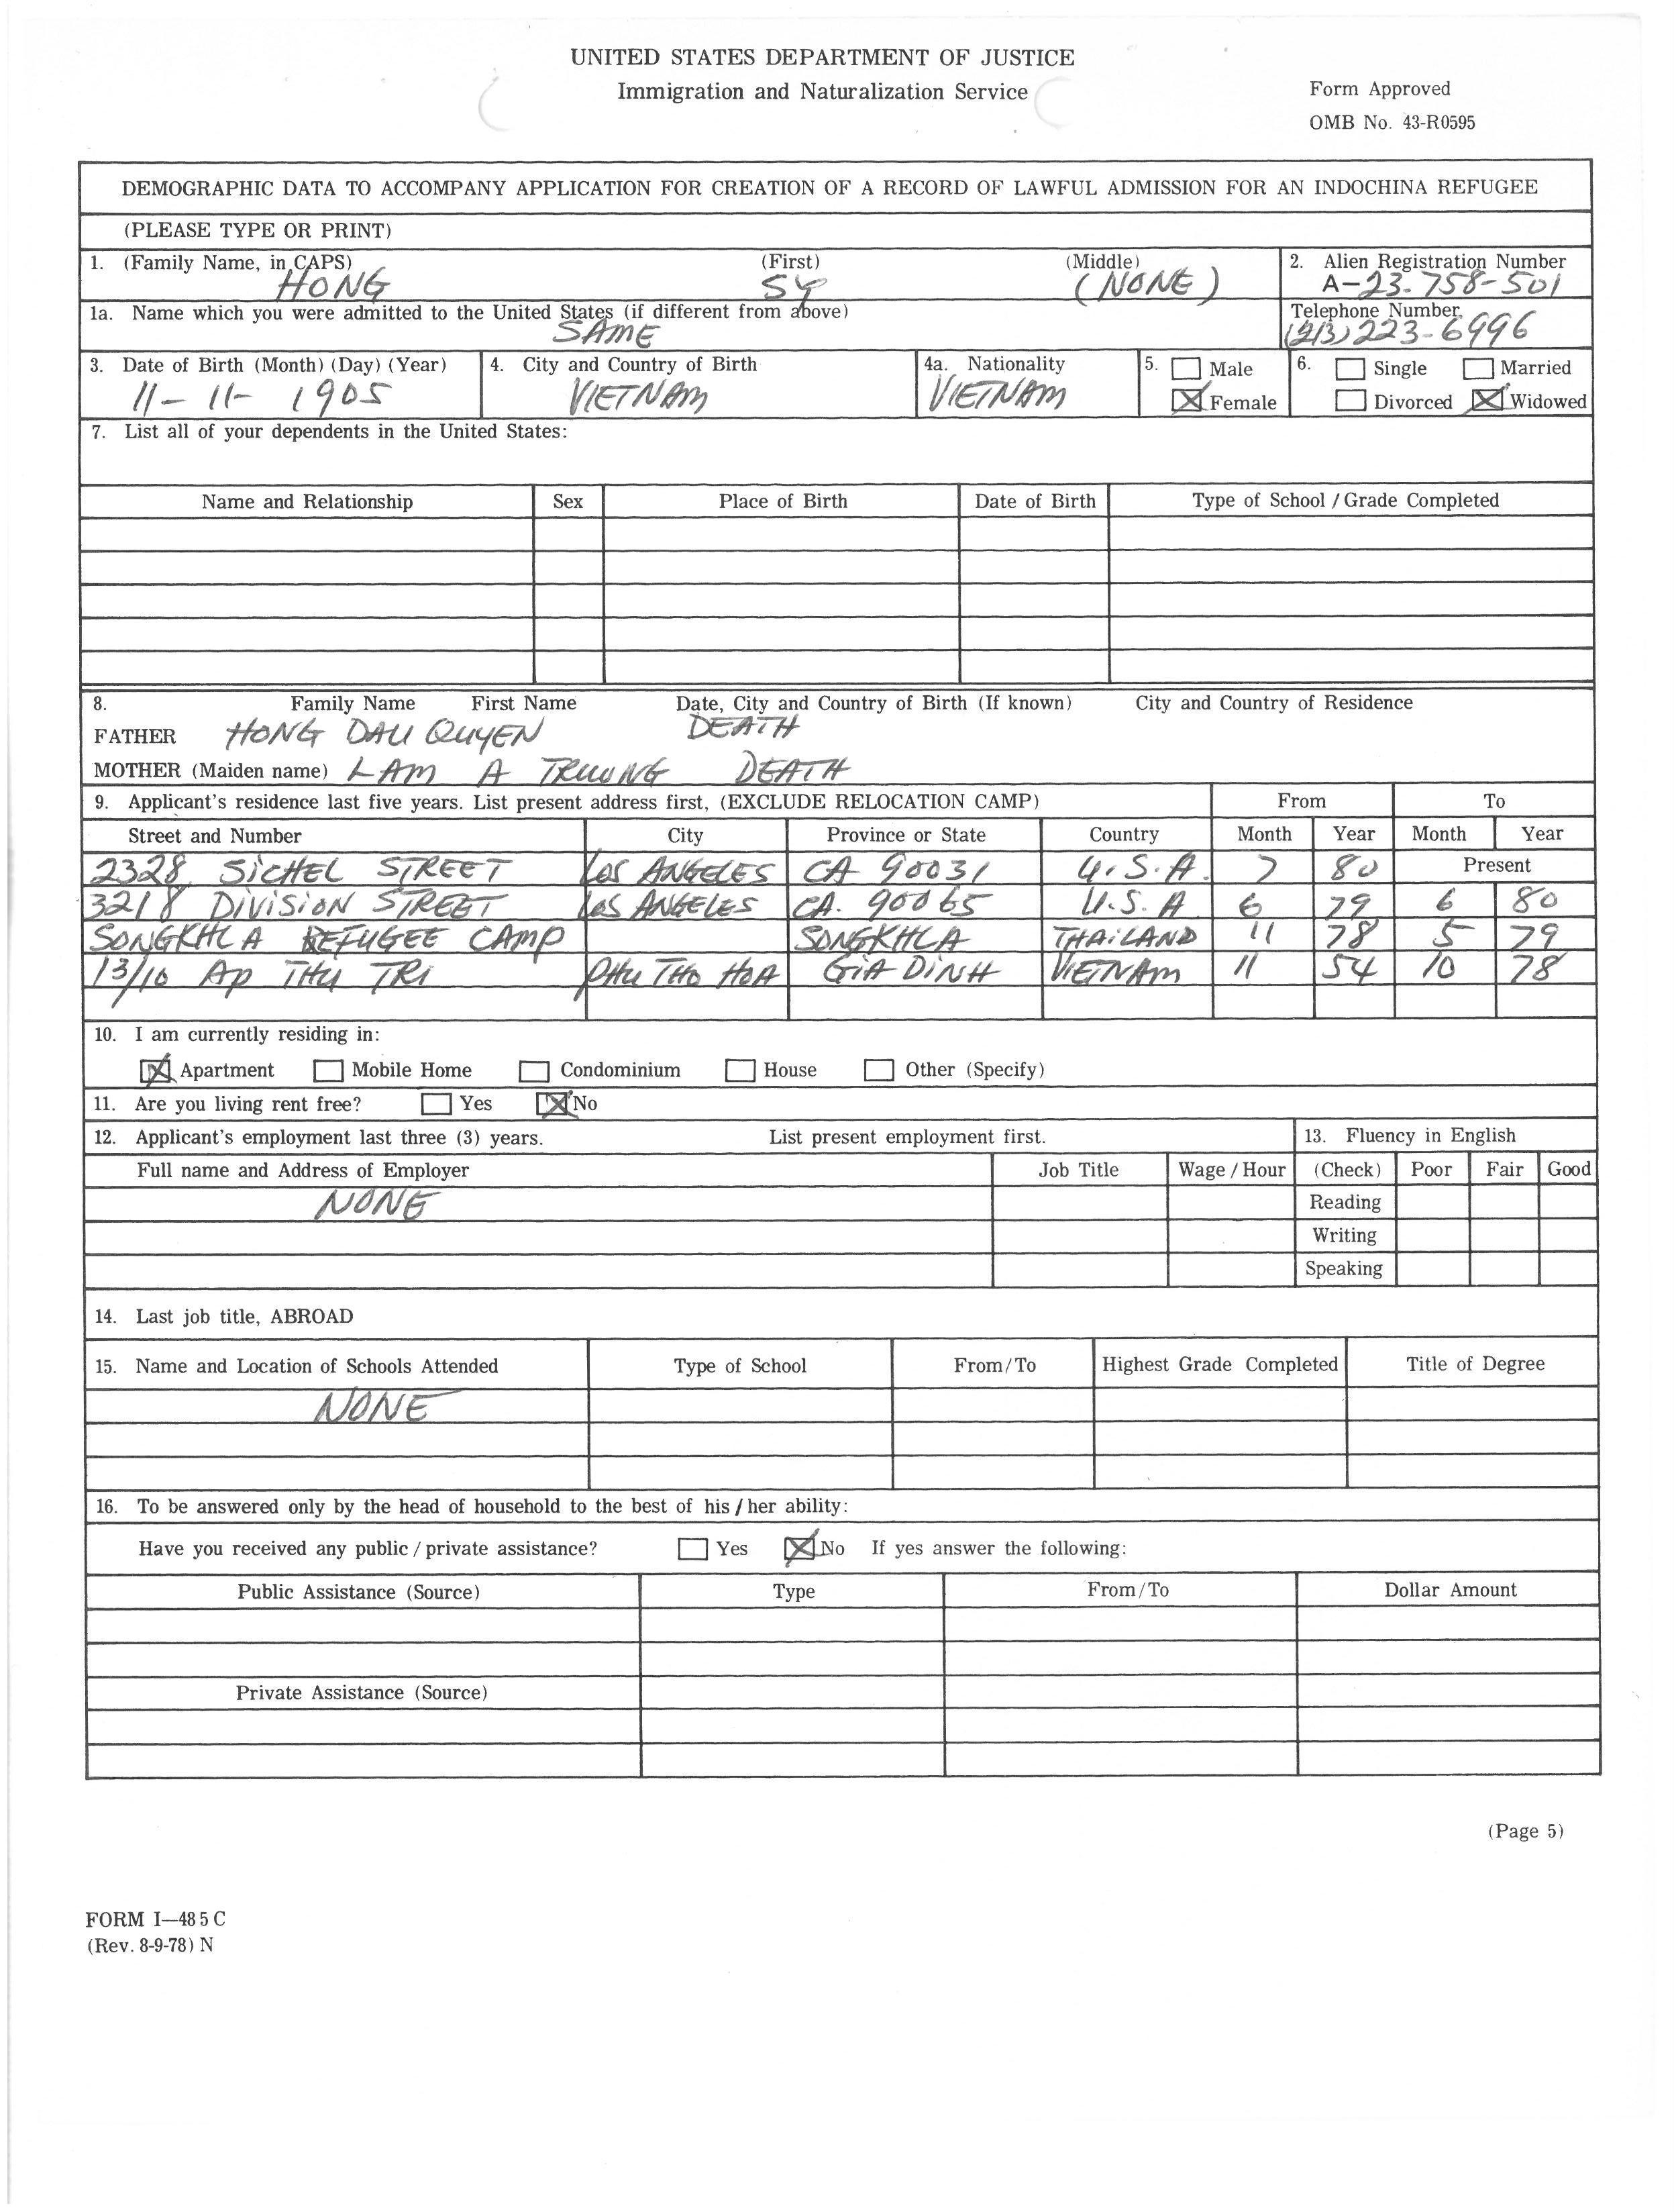 UNITED STATES DEPARTMENT OF JUSTICE
Immigration and Naturalization Service
Form Approved
OMB No. 43-R0595
DEMOGRAPHIC DATA TO ACCOMPANY APPLICATION FOR CREATION OF A RECORD OF LAWFUL ADMISSION FOR AN INDOCHINA REFUGEE
(PLEASE TYPE OR PRINT)
1. (Family Name, in CAPS) (First) (Middle) 2. Alien Registration Number
HONG SY (NONE) A-23-758-501
1a. Name which you were admitted to the United States (if different from above) Telephone Number
SAME (213) 223-6996
3. Date of Birth (Month) (Day) (Year) 4. City and Country of Birth 4a. Nationality 5. Male 6. Single Married
11-11-1905 VIETNAM VIETNAM X Female Divorced X Widowed
7. List all of your dependents in the United States:
Name and Relationship Sex Place of Birth Date of Birth Type of School / Grade Completed
8. Family Name First Name Date, City and Country of Birth (If known) City and Country of Residence
FATHER HONG DAU QUYEN DEATH
MOTHER (Maiden name) LAM A TRUUNG DEATH
9. Applicant's residence last five years. List present address first, (EXCLUDE RELOCATION CAMP) From To
Street and Number City Province or State Country Month Year Month Year
2328 SICHEL STREET LOS ANGELES CA 90031 U.S.A. 7 80 Present
3218 DIVISION STREET LOS ANGELES CA. 90065 U.S.A 6 79 6 80
SONGKHLA REFUGEE CAMP SONGKHLA THAILAND 11 78 5 79
13/10 AP THU TRI PHU THO HOA GIA DINH VIETNAM 11 54 10 78
10. I am currently residing in:
X Apartment Mobile Home Condominium House Other (Specify)
11. Are you living rent free? Yes X No
12. Applicant's employment last three (3) years. List present employment first. 13. Fluency in English
Full name and Address of Employer Job Title Wage / Hour (Check) Poor Fair Good
NONE Reading
Writing
Speaking
14. Last job title, ABROAD
15. Name and Location of Schools Attended Type of School From/To Highest Grade Completed Title of Degree
NONE
16. To be answered only by the head of household to the best of his / her ability:
Have you received any public / private assistance? Yes X No If yes answer the following:
Public Assistance (Source) Type From/To Dollar Amount
Private Assistance (Source)
(Page 5)
FORM I—485 C
(Rev. 8-9-78) N